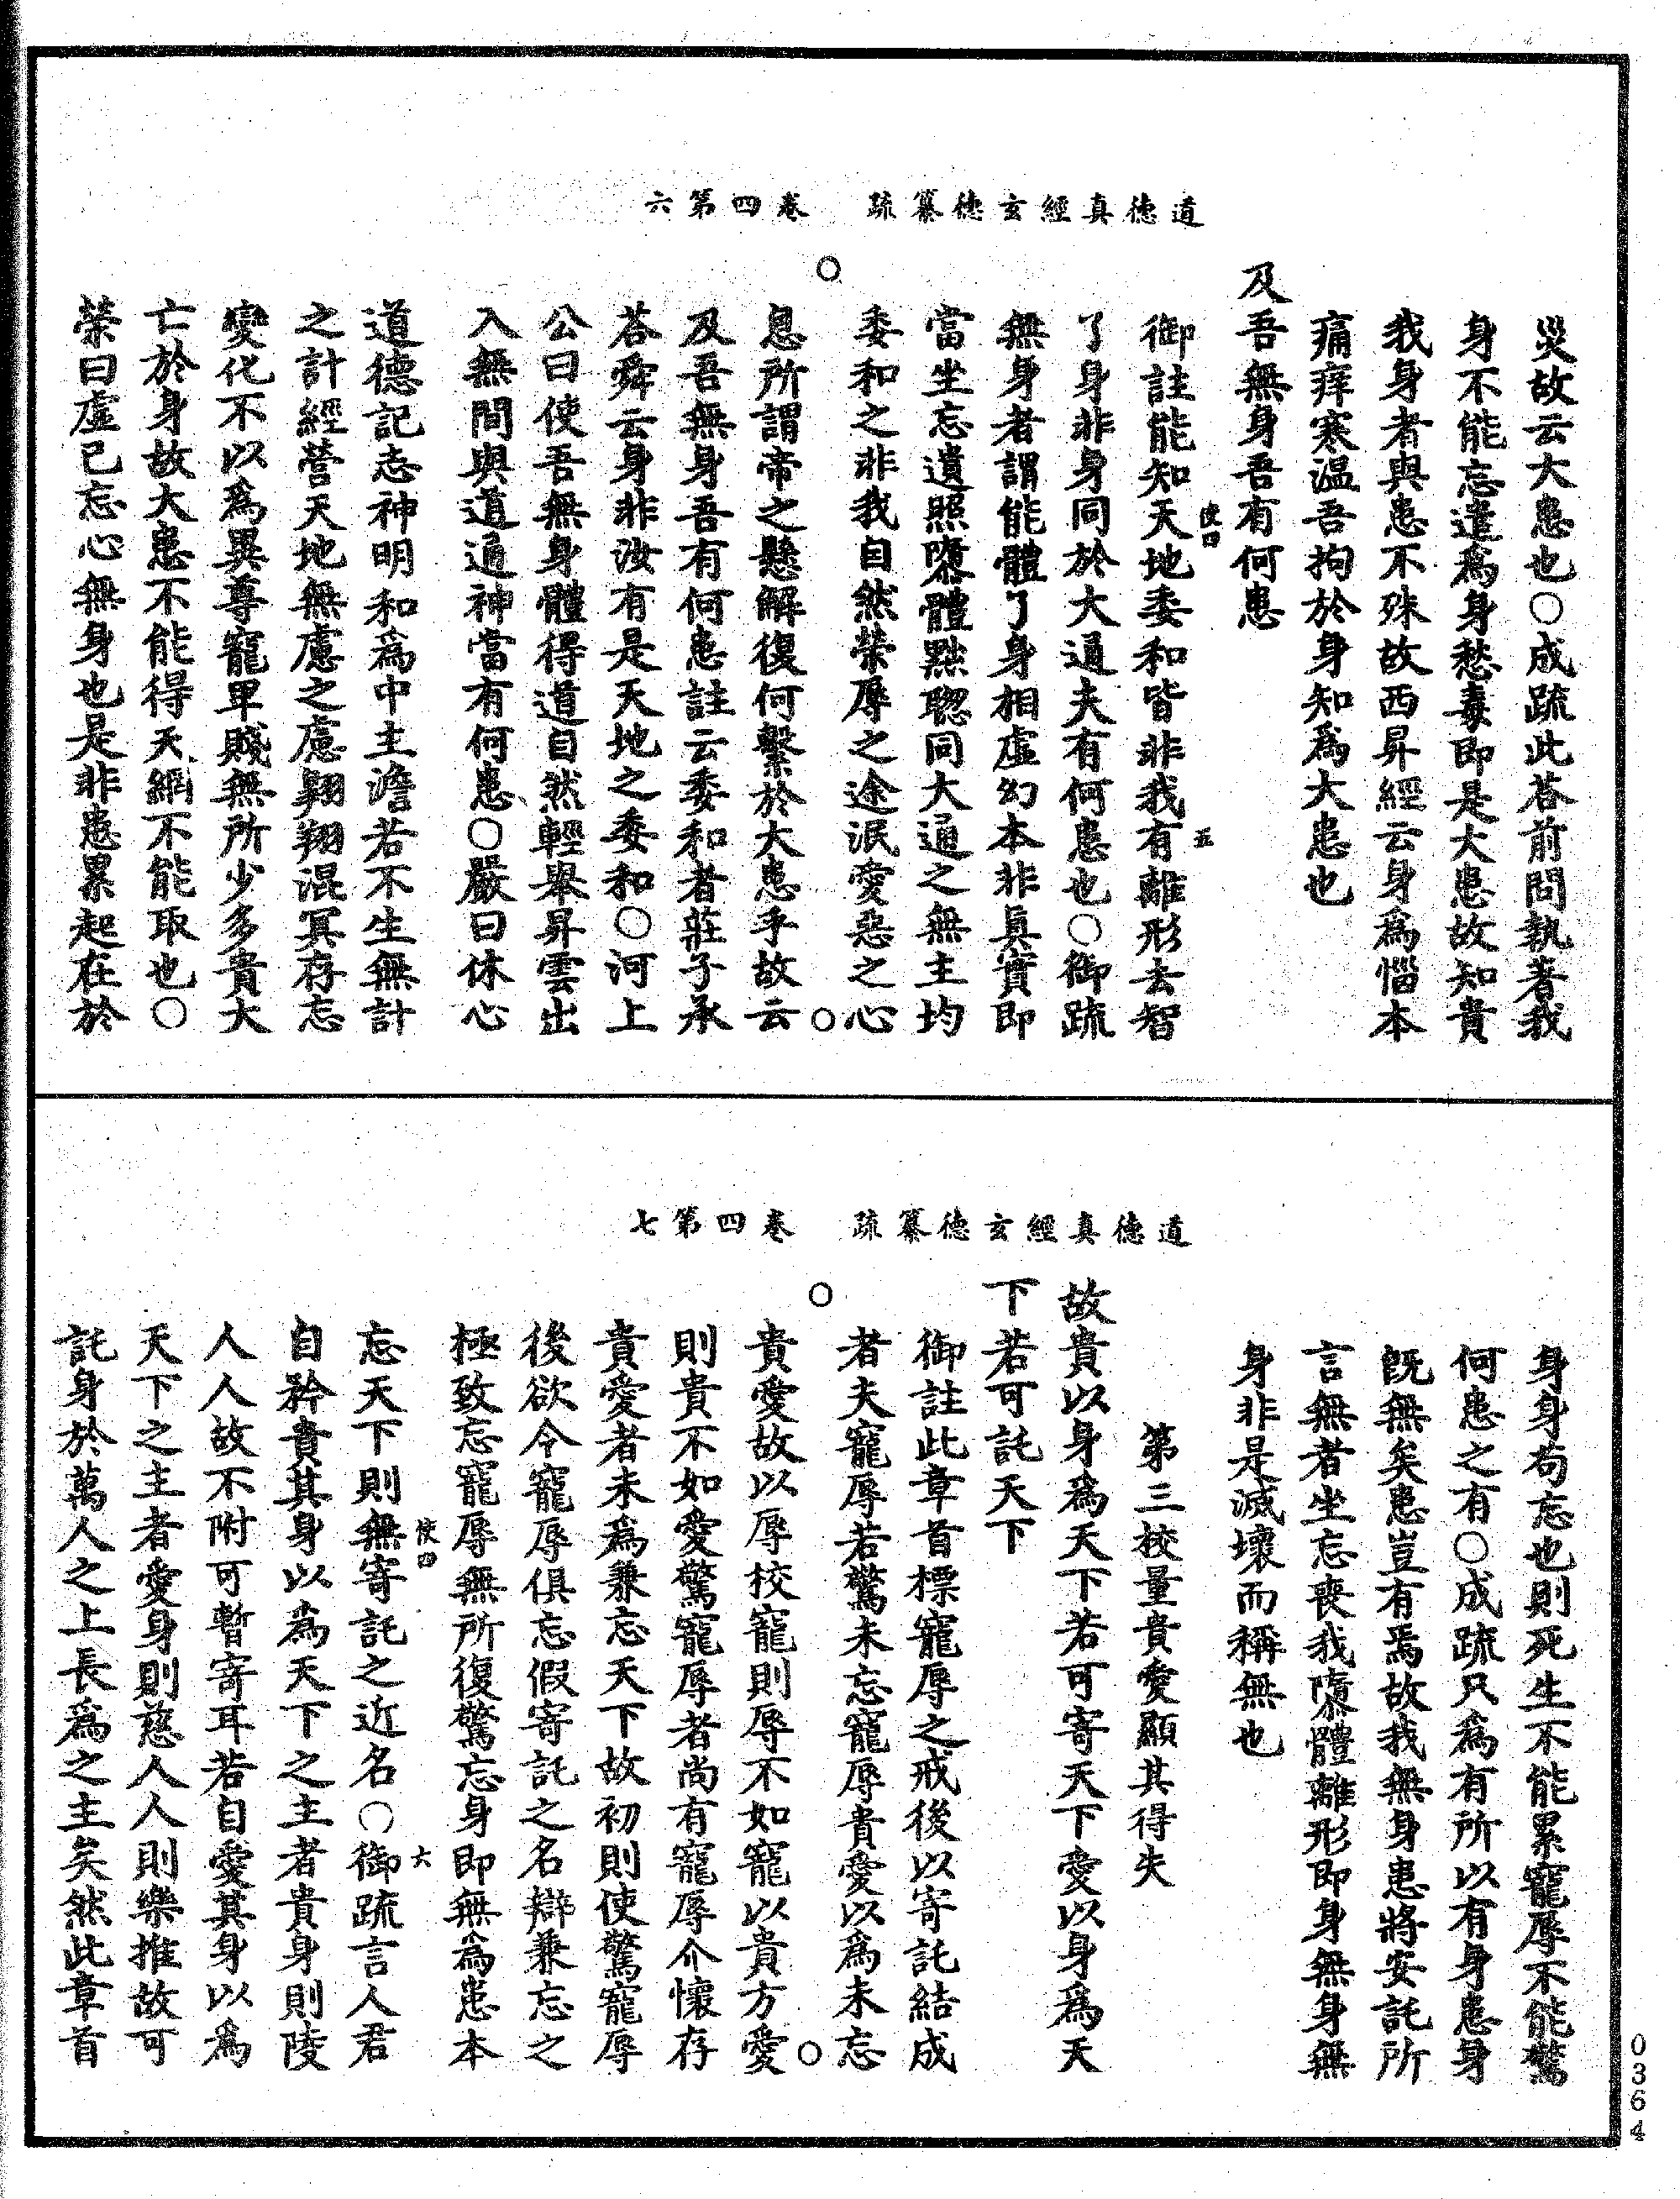 道德真經玄德纂疏　卷四第六
災故云大患也○成疏此荅前問執著我
身不能忘遣爲身愁毒即是大患故知貴
我身者與患不殊故西昇經云身爲惱本
痛痒寒温吾拘於身知爲大患也
及吾無身吾有何患
使四　五
御註能知天地委和皆非我有離形去智
了身非身同於大通夫有何患也○御疏
無身者謂能體了身相虛幻本非眞實即
當坐忘遺照隳體黜聦同大通之無主均
委和之非我自然榮辱之途泯愛惡之心
息所謂帝之懸解復何繫於大患乎故云
及吾無身吾有何患註云委和者莊子承
荅舜云身非汝有是天地之委和○河上
公曰使吾無身體得道自然輕舉昇雲出
入無間與道通神當有何患○嚴曰休心
道德記志神明和爲中主澹若不生無計
之計經營天地無慮之慮翺翔混冥存忘
變化不以爲異尊寵卑賤無所少多貴大
亡於身故大患不能得天網不能取也○
榮曰虛己忘心無身也是非患累起在於
道德真經玄德纂疏　卷四第七
身身苟忘也則死生不能累寵辱不能驚
何患之有○成疏只爲有所以有身患身
既無矣患豈有焉故我無身患將安託所
言無者坐忘喪我隳體離形即身無身無
身非是滅壞而稱無也
第三校量貴愛顯其得失
故貴以身爲天下若可寄天下愛以身爲天
下若可託天下
御註此章首標寵辱之戒後以寄託結成
者夫寵辱若驚未忘寵辱貴愛以爲未忘
貴愛故以辱校寵則辱不如寵以貴方愛
則貴不如愛驚寵辱者尚有寵辱介懷存
貴愛者未爲兼忘天下故初則使驚寵辱
後欲令寵辱俱忘假寄託之名辯兼忘之
極致忘寵辱無所復驚忘身即無為患本
使四　六
忘天下則無寄託之近名○御疏言人君
自矜貴其身以為天下之主者貴身則陵
人人故不附可暫寄耳若自愛其身以為
天下之主者愛身則慈人人則樂推故可
託身於萬人之上長爲之主矣然此章首
0364